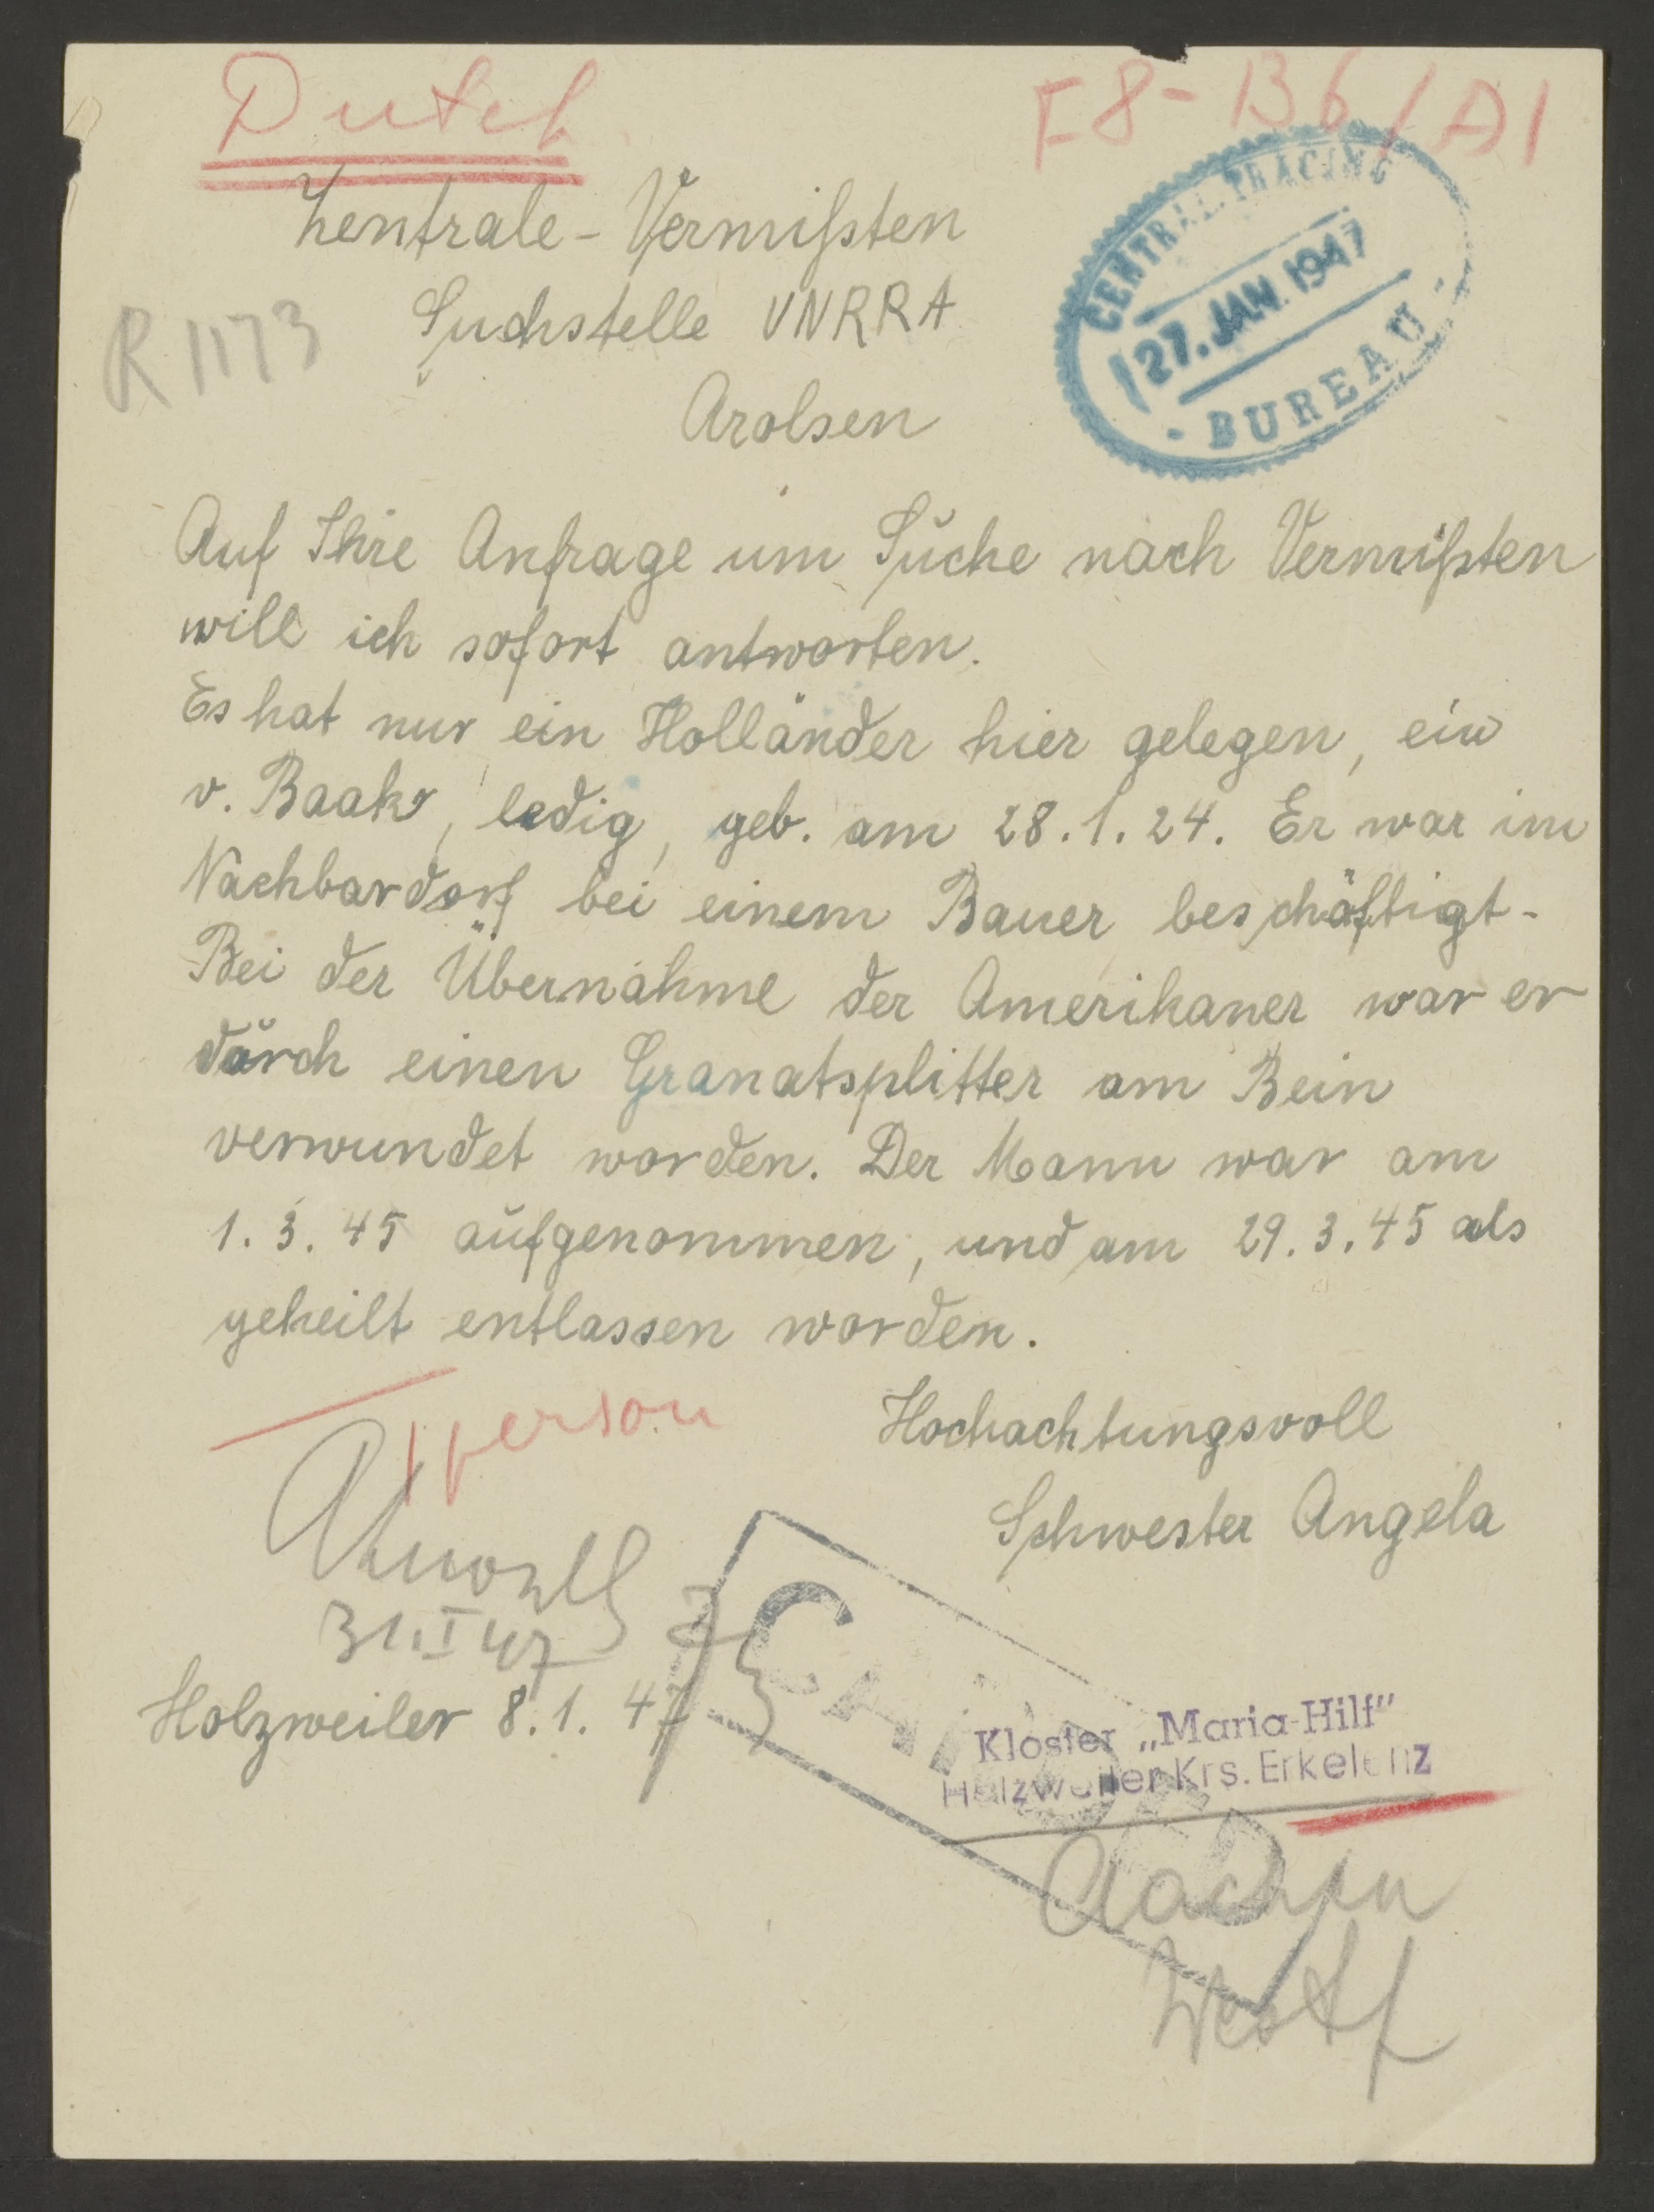 Dutch
F8-136/A1
Zentrale-Vermißten
Suchstelle UNRRA
R 1173
Arolsen
CENTRAL TRACING
27. JAN. 1947
- BUREAU -
Auf Ihre Anfrage um Suche nach Vermißten
will ich sofort antworten.
Es hat nur ein Holländer hier gelegen, ein
v. Baaks, ledig, geb. am 28.1.24. Er war im
Nachbardorf bei einem Bauer beschäftigt.
Bei der Übernahme der Amerikaner war er
durch einen Granatsplitter am Bein
verwundet worden. Der Mann war am
1.3.45 aufgenommen, und am 29.3.45 als
geheilt entlassen worden.
1 person
Hochachtungsvoll
Schwester Angela
31.I 47
Holzweiler 8.1.47
Kloster „Maria-Hilf"
Holzweiler Krs. Erkelenz
Aachen